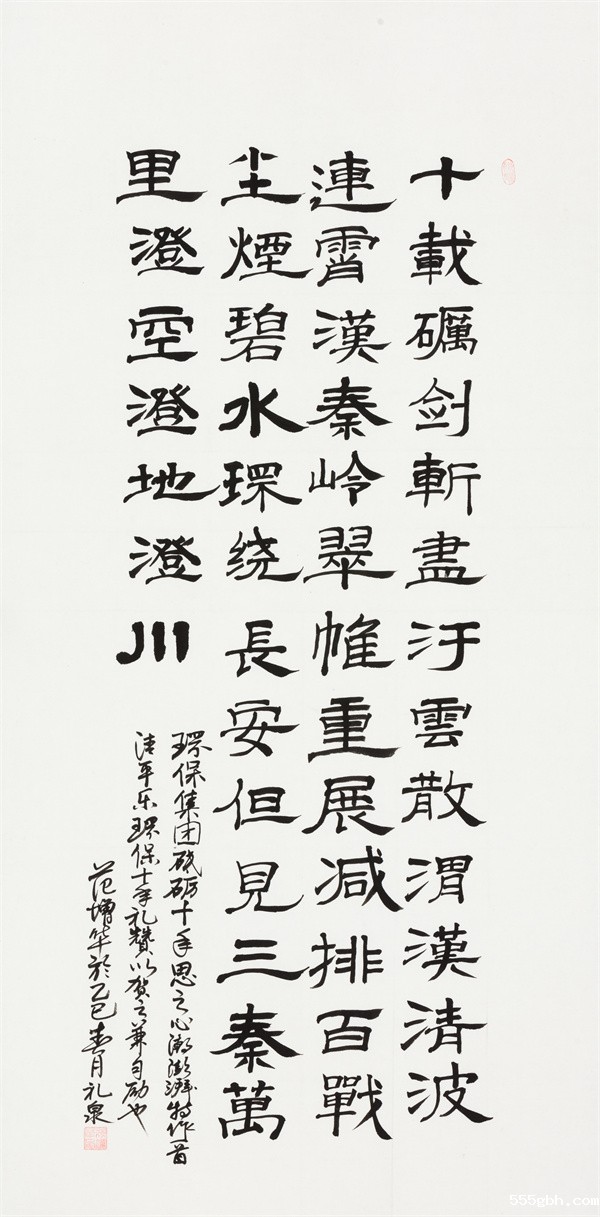 十載礪剑斬盡汙雲散渭漢清波
連霄漢秦岭翠帷重展减排百戰
尘煙碧水環绕長安但見三秦萬
里澄空澄地澄川
环保集团砥砺十年思之心潮澎湃特作首
清平乐环保十年礼赞以贺之兼自励也
范增华於乙巳春月礼泉
555gbh.com